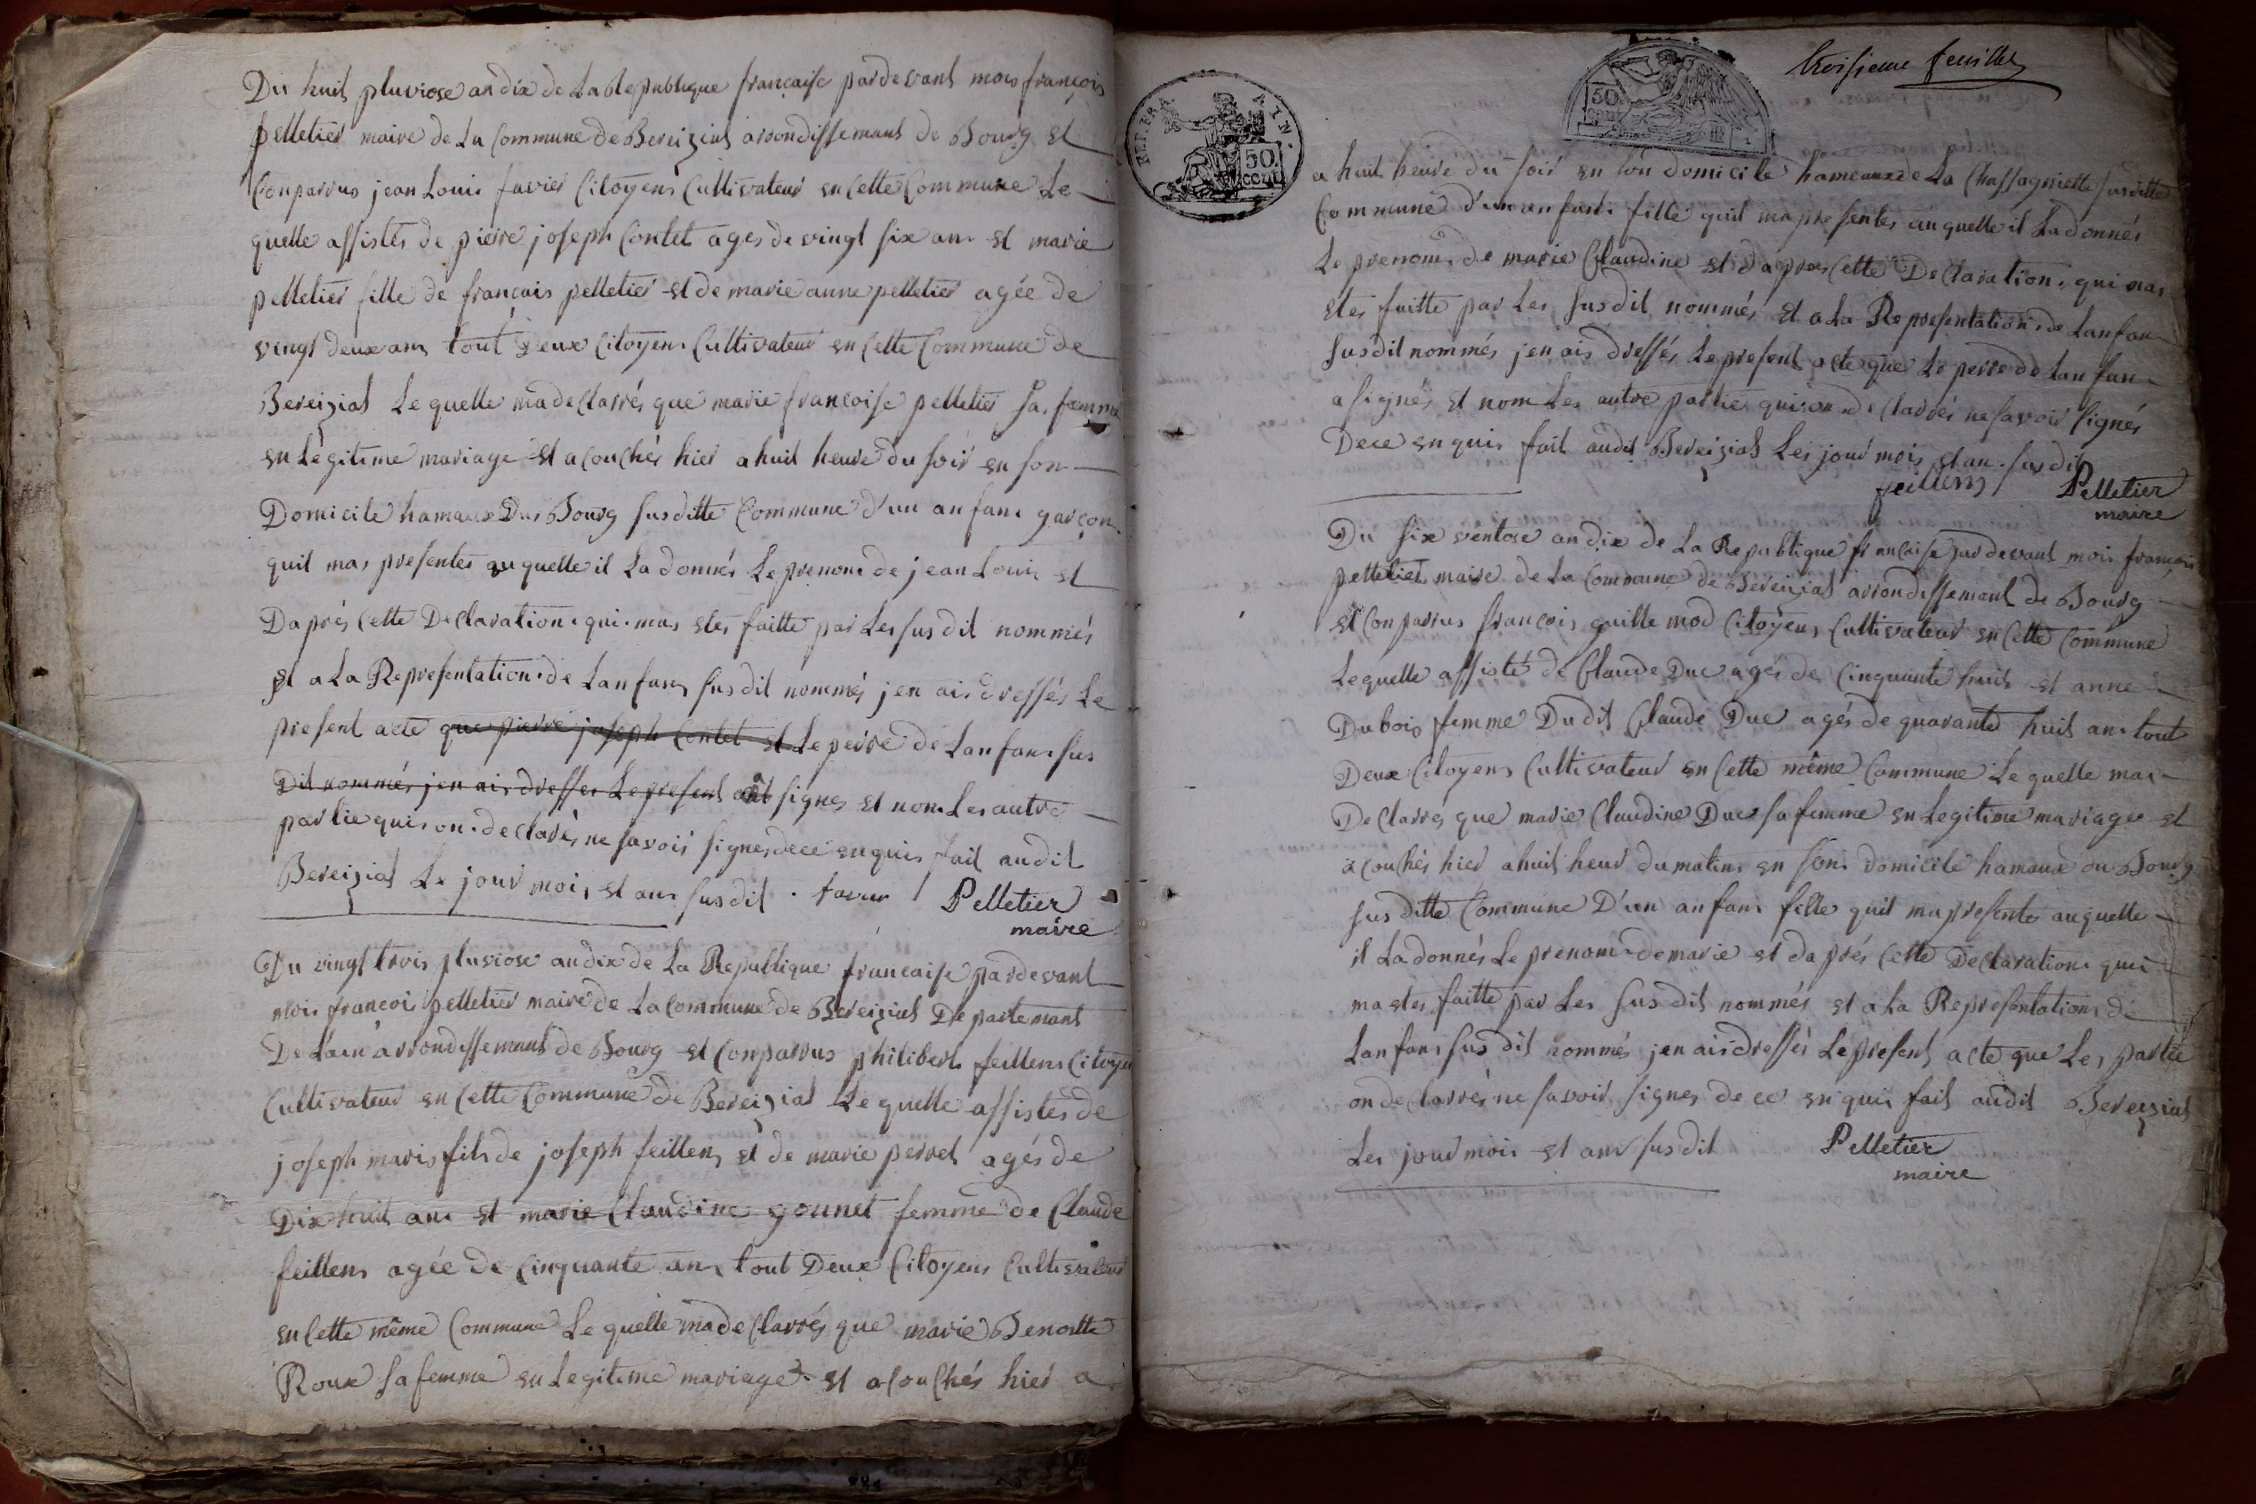 Du huit pluviose an dix de La Republique française pardevant mois françois
pelletier maire de La Commune de Bereiziat arrondissemant de Bourg et
Conparrus jean Louis favier Citoyens Cultivateur en Cette Commune Le
quelle assistes de pierre joseph Contet ages de vingt six ans et marie
pelletier fille de francais pelletier et de marie anne pelletier agée de
vingt deux ans tout deux Citoyens Cultivateur en Cette Commune de
Bereiziat Le quelle ma de Clarrés que marie francoise pelletier sa femme
en Legitime mariage et acouchés hier a huit heure du soir en son
Domicile hamaux Du Bourg susditte Commune d'un anfans garçon
quil mas presentes auquelle il La donnés Le prenom de jean Louis et
Daprés Cette Declaration qui mas etes faitte par Les susdit nommés
et a La Representation de Lanfans susdit nommés jen ais dressés Le
present acte que pierre joseph Contet et Le perre de Lanfans sus
Dit nommés jen ais dresser Le present a signes et non Les autre
partie quis on declarés ne savoir signes dece enquis fait audit
Bereiziat Le jour mois et ans susdit favier Pelletier
maire
Du vingt trois pluviose an dix de La Republique francaise pardevant
mois francois pelletier maire de La commune de Bereiziat Departemant
De Lain arrondissemant de Bourg et Conparrus philibert feillens Citoyen
Cultivateur en Cette Commune de Bereiziat Le quelle assistes de
joseph maris fils de joseph feillens et de marie perret agés de
Dix huit ans et marie Claudine gounet femme de Claude
feillens agée de Cinquante ans tout Deux Citoyens Cultivateur
en Cette même Commune Le quelle ma de Clarrés que marie Benoitte
Roux sa femme en Legitime mariage et acouchés hier a
troisieme feuille
REP. FRA.
50
CENT
50
CENT
a huit heure du soir en son domicile hameaux de La Chassagniette susditte
Commune d'un anfans fille quil ma presentes auquelle il La donnés
Le prenom de marie Claudine et Dapres Cette Declaration qui mas
etes faitte par Les susdit nommés et a La Representation de Lanfans
susdit nommés jen ais dressés Le present acte que Le perre de Lanfans
a signés et nom Les autre partie quis on declarrés ne savoir signés
Dece enquis fait audit Bereiziat Les jour mois et an susdit
feillens Pelletier
maire
Du six ventose an dix de La Republique francaise pardevant mois francois
pelletier maire de La commune de Bereiziat arrondissemant de Bourg
et Conparrus francois guille mod Citoyens Cultivateur en Cette Commune
Lequelle assistés de Claude Duc agés de Cinquante huit et anne
Dubois femme Dudit Claude Duc agés de quarante huit ans tout
Deux Citoyens Cultivateur en Cette même Commune Le quelle mas
De Clarrés que marie Claudine Duc sa femme en Legitime mariage et
acouchés hier a huit heur du matin en son domicile hamaux du Bourg
susditte Commune D'un anfans fille quil ma presentes auquelle
il La donnés Le prenom de marie et daprés Cette Declaration qui
mas etes faitte par Les susdit nommés et a La Representation de
Lanfans susdit nommés jen ais dressés Le present acte que Les partie
on de Clarrés ne savoir signes de ce enquis fait audit Bereiziat
Les jour mois et ans susdit Pelletier
maire